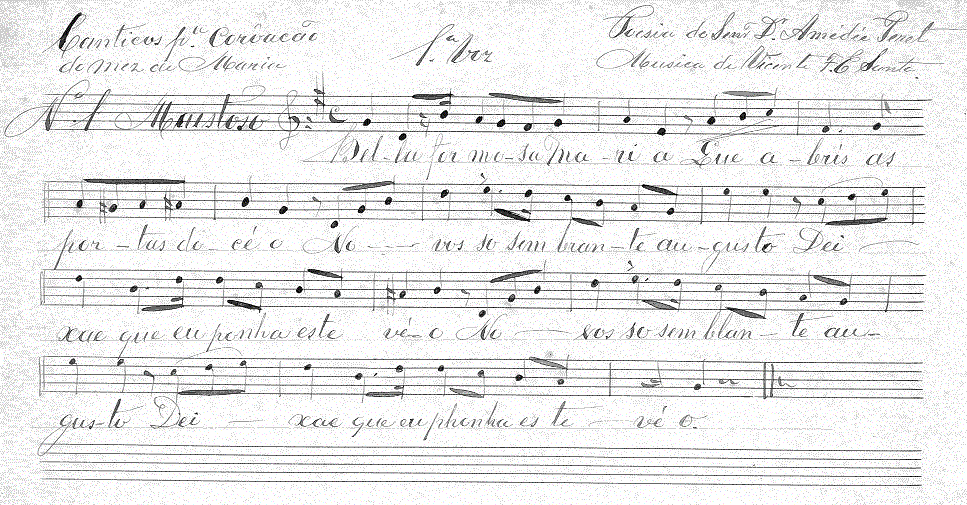 Canticos p.ª Corôacão
do mez de Maria
1.ª Voz
Poesia do Senr. Dr. Amédéo Peret
Musica de Vicente F. E. Santo.
N. 1 Maestoso
Bel-la for mo-sa Ma-ri a Que a-bris as
por-tas do cé o No vos so sem blan-te au-gusto Dei
xae que eu ponha este vé-o No vos so sem blan-te au-
gus-to Dei xae que eu phonha es te vé o.